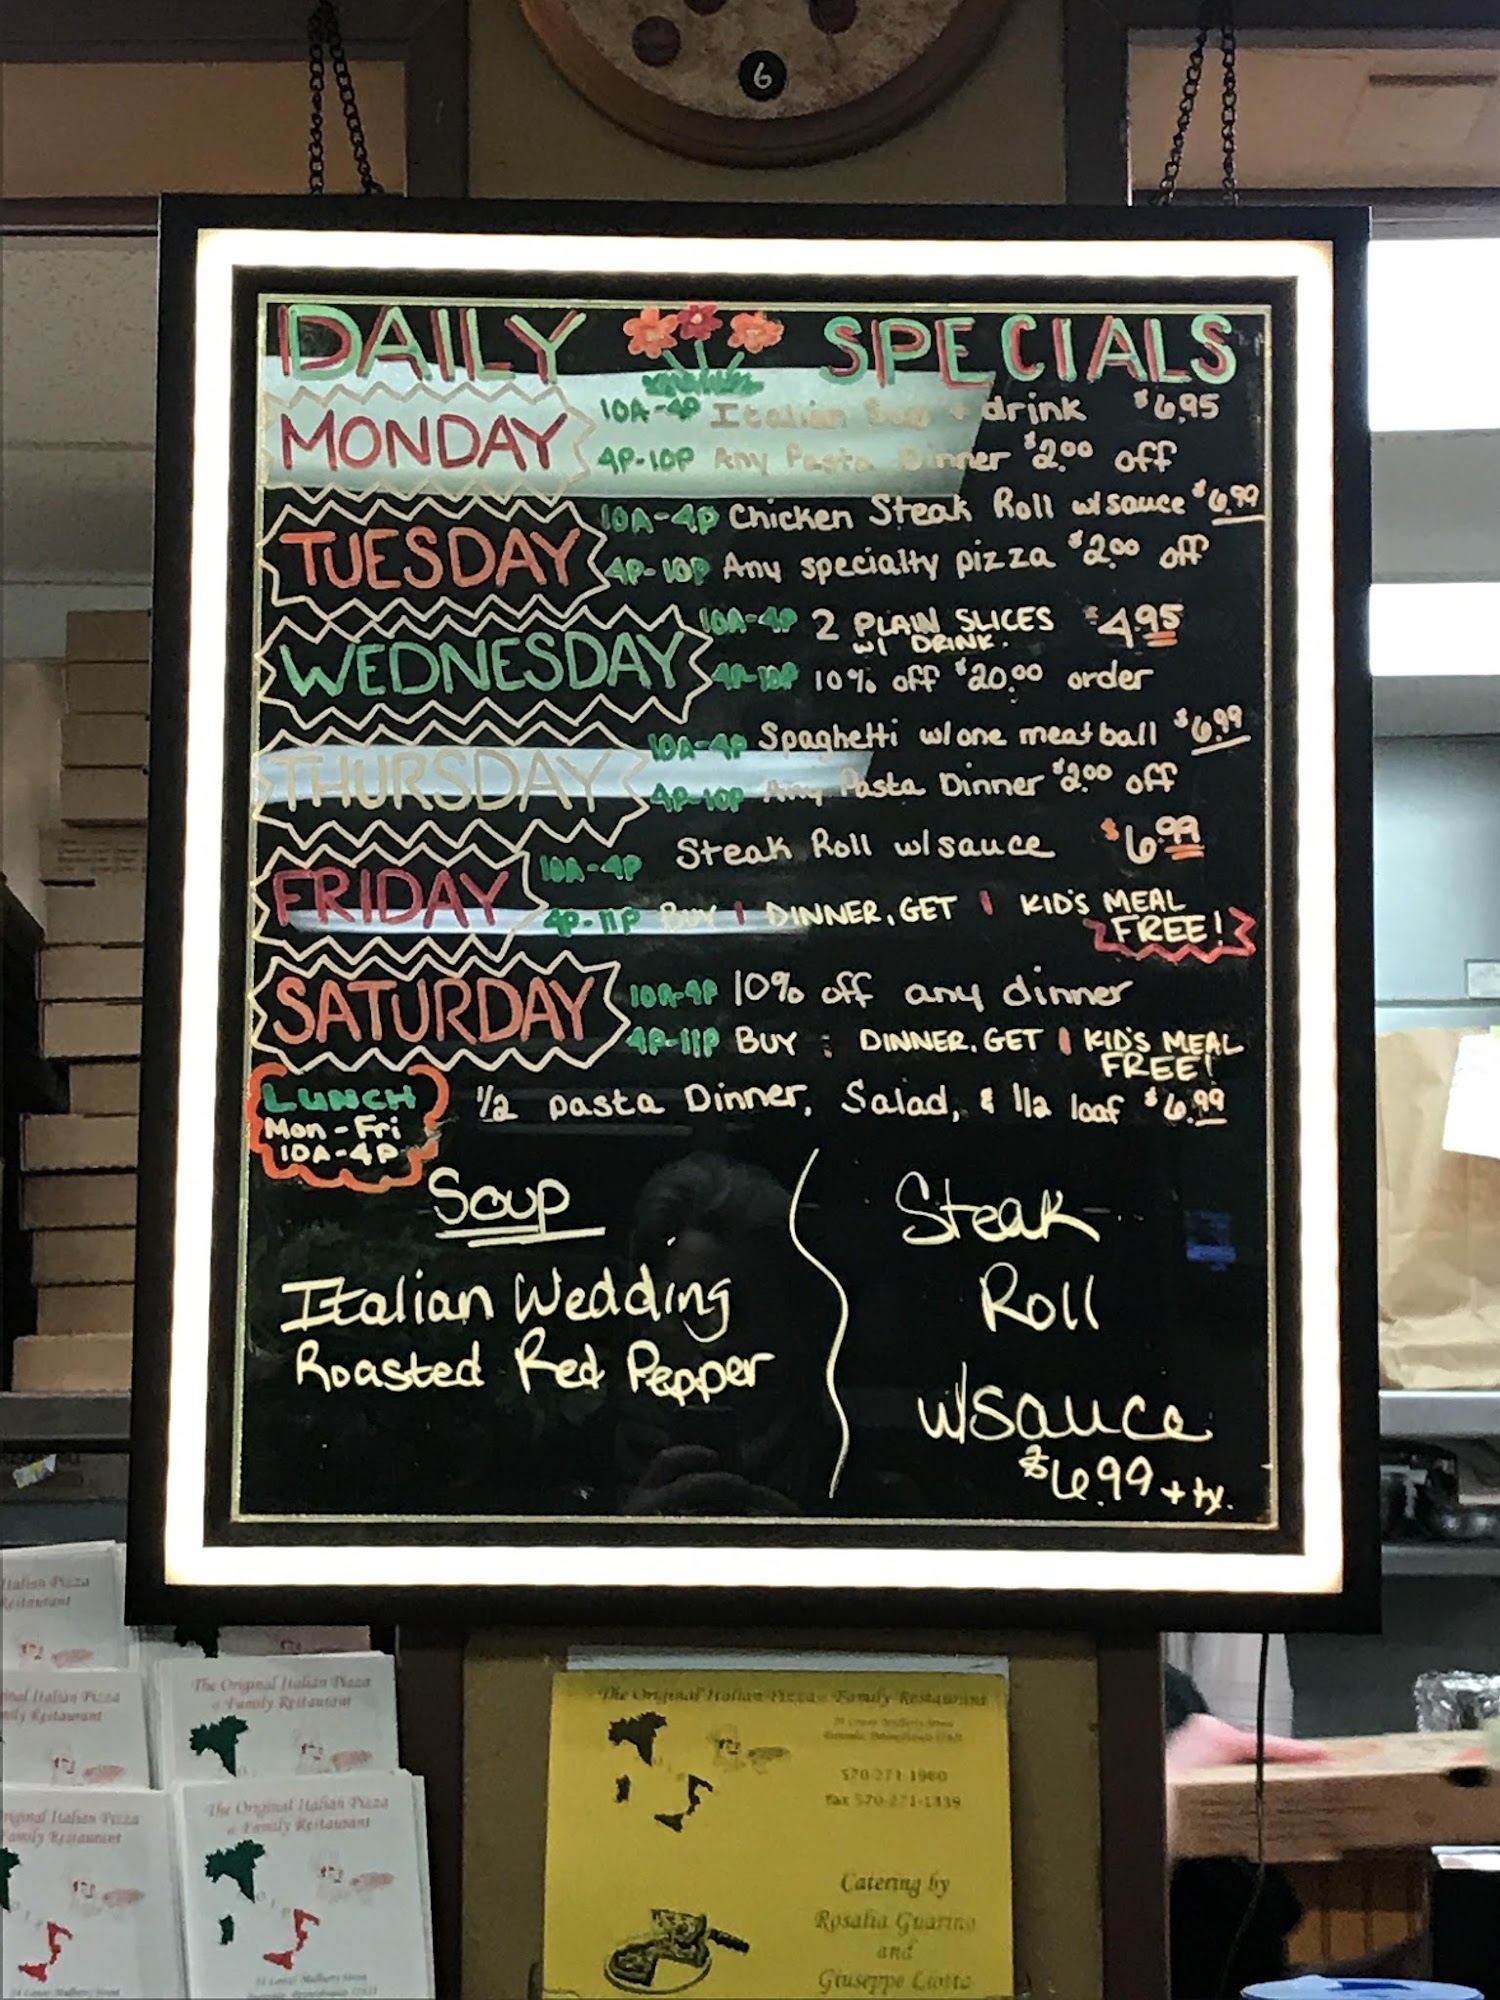 6
DAILY SPECIALS
MONDAY
10A-4P Italian Sub + drink $6.95
4P-10P Any Pasta Dinner $2.00 off
TUESDAY
10A-4P Chicken Steak Roll w/sauce $6.99
4P-10P Any specialty pizza $2.00 off
WEDNESDAY
10A-4P 2 PLAIN SLICES $4.95
w/ DRINK.
4P-10P 10% off $20.00 order
THURSDAY
10A-4P Spaghetti w/one meatball $6.99
4P-10P Any Pasta Dinner $2.00 off
FRIDAY
10A-4P Steak Roll w/sauce $6.99
4P-11P BUY 1 DINNER, GET 1 KID'S MEAL
FREE!
SATURDAY
10A-4P 10% off any dinner
4P-11P BUY 1 DINNER, GET 1 KID'S MEAL
FREE!
LUNCH
Mon-Fri
10A-4P
1/2 pasta Dinner, Salad, & 1/2 loaf $6.99
Soup
Italian Wedding
Roasted Red Pepper
Steak
Roll
w/sauce
$6.99 + tx.
Italian Pizza
Restaurant
The Original Italian Pizza
& Family Restaurant
The Original Italian Pizza
& Family Restaurant
The Original Italian Pizza & Family Restaurant
570-271-1960
Fax 570-271-1339
Catering by
Rosalia Guarino
and
Giuseppe Liotta